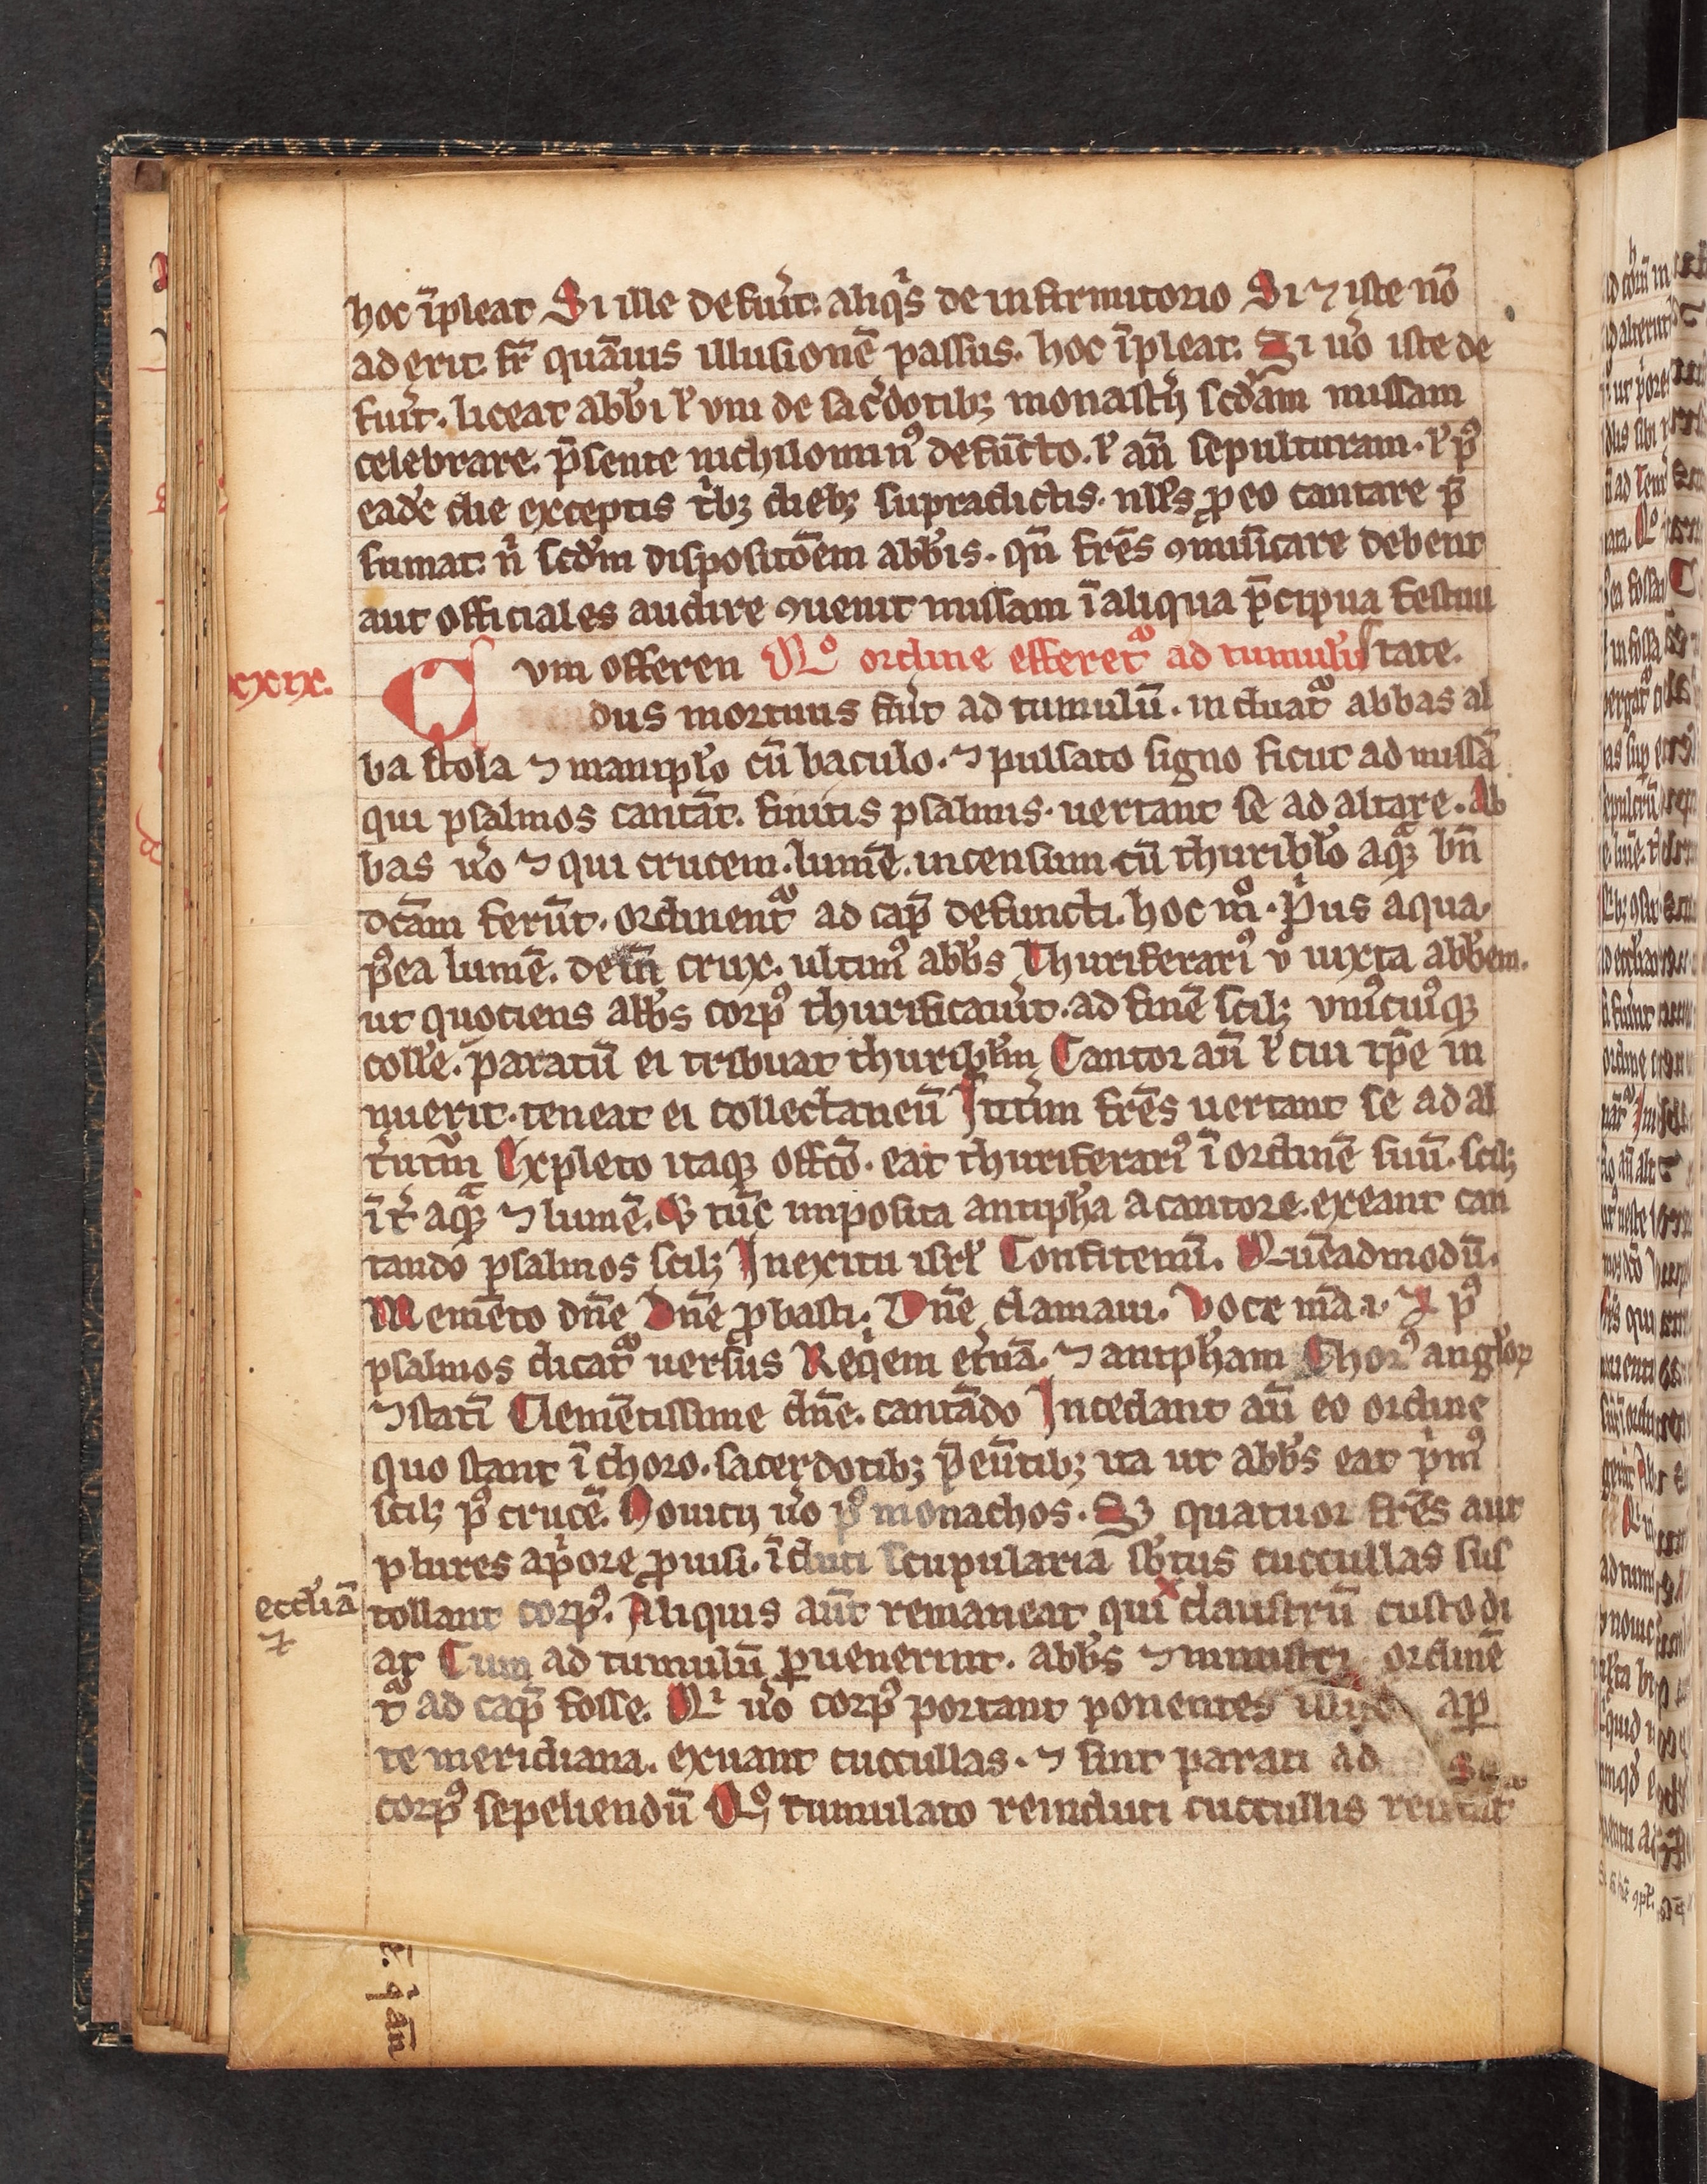 hoc īpleat Si ille defuit᷑. aliqⁱs de infirmitorio Si ⁊ iste nō
ad erit. fr̄ quāuis illusionē passus. hoc īpleat. Si uͦo iste de
fuit᷑. liceat abb̄i ł vni de sac̓dotibꝫ monast̓ij scd̓am missam
celebrare. p̄sente nichilominꝰ defūcto. ł an̄ sepulturam. ł pꝰ
eadē die exceptis t̓bꝫ diebꝫ supradictis. nll̓s ꝓ eo cantare p̄
sumat. nⁱ scd̓m dispositōem abb̓is. qn̄ frēs ꝯmunicare debent
aut officiales audire ꝯuenit missam ī aliqua p̄cipua festiui
xcix.
Cvm offeren Qͦ ordine efferet᷑ ad tumulū tate.
dus mortuus fuit᷑ ad tumulū. induat᷑ abbas al
ba stola ⁊ manipl̓o cū baculo. ⁊ pulsato signo sicut ad missā
qui psalmos cantāt. finitis psalmis. uertant se ad altare. Ab
bas uͦo ⁊ qui crucem. lumē. incensum cū thuribl̓o aqᷓꝫ bn̄
dc̄am ferūt. ordinent᷑ ad cap̄ defuncti. hoc mͦ. Pⁱus aqua.
pꝰea lumē. dein̄ crux. ultimꝰ abb̓s Thuriferariꝰ uͦ iuxta abb̓em.
ut quotiens abb̓s corpꝰ thurificauit᷑. ad finē scilꝫ vniꝰcuiꝰqꝫ
coll̓e. paratū ei tribuat thuribl̓m Cantor aū ł cui ip̄e in
nuerit. teneat ei collectaneū Int̓im frēs uertant se ad al
t̓utrū Expleto itaqꝫ offō. eat thuriferariꝰ ī ordinē suū. scilꝫ
īt̓ aqᷓꝫ ⁊ lumē. Et tūc imposita antiph̄a a cantore. exeant can
tando psalmos scilꝫ In exitu isrl̓ Confitemī. Quēadmodū.
Memēto dn̄e Dn̄e ꝓbasti. Dn̄e clamaui. Voce mā. i. Et pꝰ
psalmos dicat᷑ uersus Reqⁱem et̓nā. ⁊ antiph̄am Chorꝰ angl̓oꝝ
⁊ statī Clemētissime dn̄e. cantādo Incedant aū eo ordine
quo stant ī choro. sacerdotibꝫ p̄eūtibꝫ ita ut abb̓s eat pⁱmꝰ
scilꝫ pꝰ crucē. Nouicij uͦo pꝰ monachos. Sꝫ quatuor frēs aut
plures a pⁱore ꝓuisi. īduti scapularia sb̓tus cucullas suas
eccl̓iā ⁊
tollant corpꝰ. Aliquis aūt remaneat qui claustrū custodi
at Cum ad tumulū ꝑuenerint. abb̓s ⁊ ministri ordinē
t᷑ ad cap̄ fosse. Qi uͦo corpꝰ portant ponentes illud a par
te meridiana. exuant cucullas. ⁊ sint parati ad
corpꝰ sepeliendū Qͦ tumulato reinduti cucullis
ē. q̄ an̄